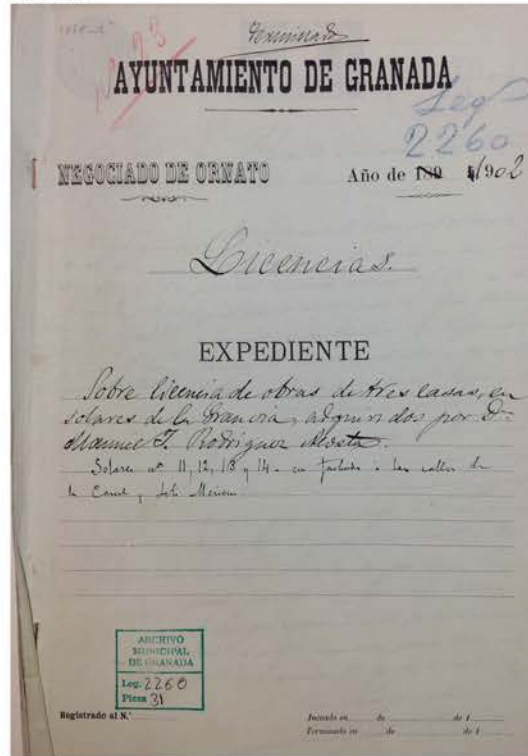 Terminado
Nº 23
AYUNTAMIENTO DE GRANADA
Leg
2260
NEGOCIADO DE ORNATO
Año de 189 1902
Licencias.
EXPEDIENTE
Sobre licencia de obras de tres casas, en
solares de la Granvia, adquiridos por Dn
Manuel J. Rodriguez Acosta.
Solares nº 11, 12, 13 y 14 - en fachada a las calles de
la Carcel y
ARCHIVO
MUNICIPAL
DE GRANADA
Leg. 2260
Pieza 31
Registrado al N.º
Incoado en de de 1
Terminado en de de 1